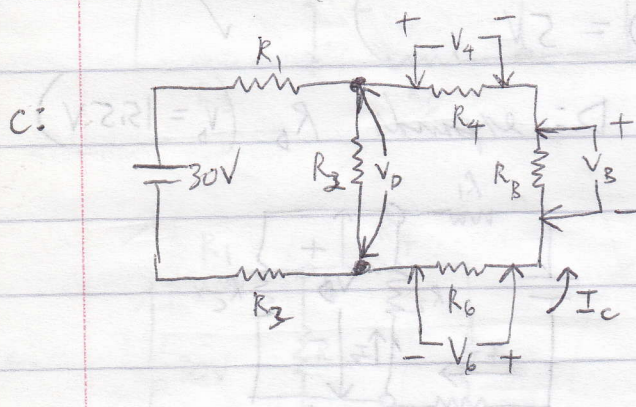 + -
V4
R1
R4
C:
+
30V
R2
VD
RB
VB
-
R3
R6
IC
- V6 +